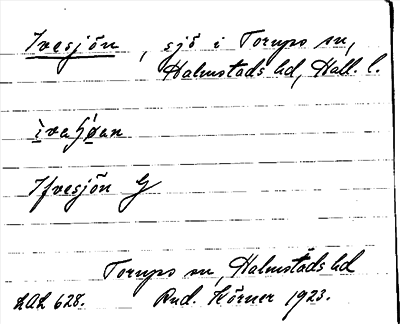 Ivesjön, sjö i Torups sn,
Halmstads hd, Hall. l.
Ifvesjön G
Torups sn, Halmstads hd
LAL 628. Rud. Hörner 1923.